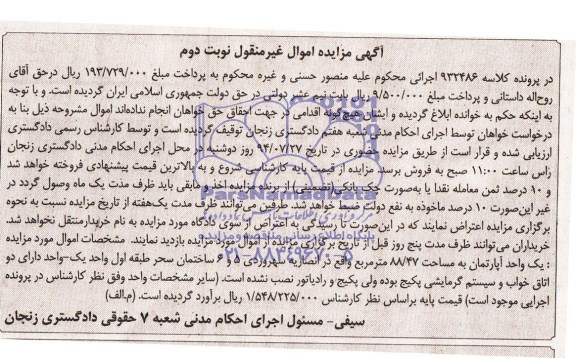 آگهی مزایده اموال غیرمنقول نوبت دوم
در پرونده کلاسه ۹۳۲۴۸۶ اجرائی محکوم علیه منصور حسنی و غیره محکوم به پرداخت مبلغ ۱۹۳/۷۲۹/۰۰۰ ریال درحق آقای
روح‌اله داستانی و پرداخت مبلغ ۹/۵۰۰/۰۰۰ ریال بابت نیم عشر دولتی در حق دولت جمهوری اسلامی ایران گردیده است. و با توجه
به اینکه حکم به خوانده ابلاغ گردیده و ایشان هیچ‌گونه اقدامی در جهت احقاق حق خواهان انجام نداده‌اند اموال مشروحه ذیل بنا به
درخواست خواهان توسط اجرای احکام مدنی شعبه هفتم دادگستری زنجان توقیف گردیده است و توسط کارشناس رسمی دادگستری
ارزیابی شده و قرار است از طریق مزایده حضوری در تاریخ ۹۴/۰۷/۲۷ روز دوشنبه در محل اجرای احکام مدنی دادگستری زنجان
راس ساعت ۱۱:۰۰ صبح به فروش برسد. مزایده از قیمت پایه کارشناسی شروع و به بالاترین قیمت پیشنهادی فروخته خواهد شد
و ۱۰ درصد ثمن معامله نقدا یا به‌صورت چک بانکی(تضمینی) از برنده مزایده اخذ و مابقی باید ظرف مدت یک ماه وصول گردد در
غیر این‌صورت ۱۰ درصد ماخوذه به نفع دولت ضبط خواهد شد. طرفین می‌توانند ظرف مدت یک‌هفته از تاریخ مزایده نسبت به نحوه
برگزاری مزایده اعتراض نمایند که در این‌صورت تا رسیدگی به اعتراض از سوی دادگاه مورد مزایده به نام خریدار منتقل نخواهد شد.
خریداران می‌توانند ظرف مدت پنج روز قبل از تاریخ برگزاری مزایده از اموال مورد مزایده بازدید نمایند. مشخصات اموال مورد مزایده
: یک واحد آپارتمان به مساحت ۸۸/۴۷ مترمربع واقع در انصاریه سهروردی ۵ و ۶ ساختمان سحر طبقه اول واحد یک-واحد دارای دو
اتاق خواب و سیستم گرمایشی پکیج بوده ولی پکیج و رادیاتور نصب نشده است. (سایر مشخصات واحد وفق نظر کارشناس در پرونده
اجرایی موجود است) قیمت پایه براساس نظر کارشناس ۱/۵۴۸/۲۲۵/۰۰۰ ریال برآورد گردیده است. (م.الف)
سیفی- مسئول اجرای احکام مدنی شعبه ۷ حقوقی دادگستری زنجان
ParsNamadData